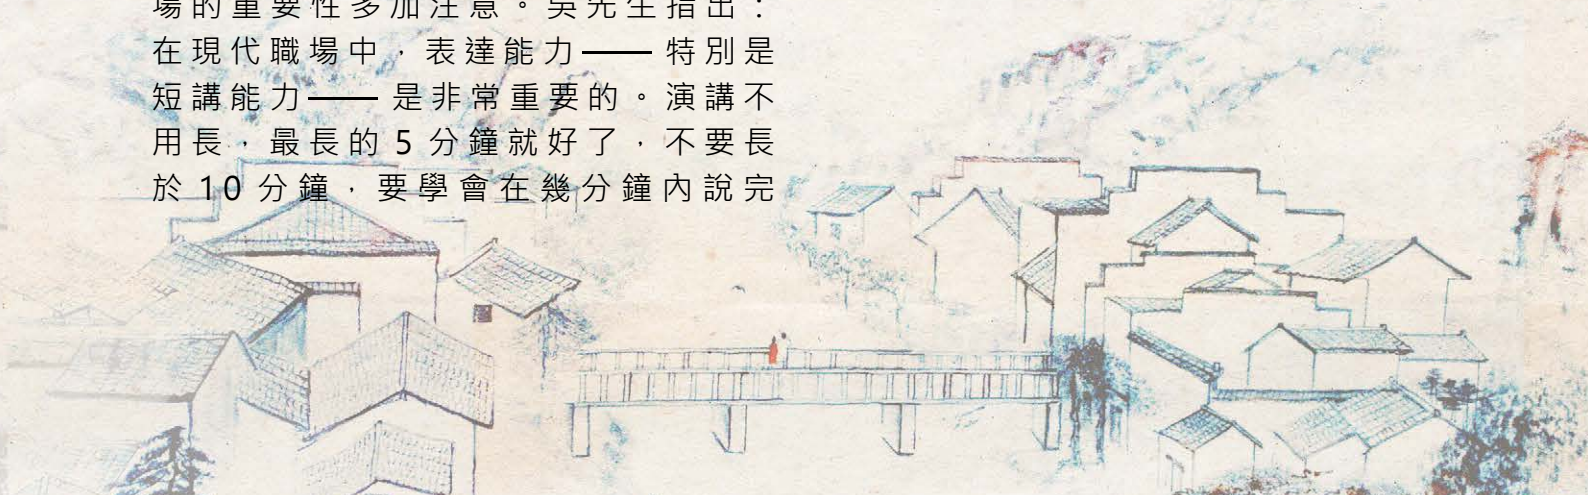 場的重要性多加注意。吳先生指出：
在現代職場中，表達能力——特別是
短講能力——是非常重要的。演講不
用長，最長的 5 分鐘就好了，不要長
於 10 分鐘，要學會在幾分鐘內說完